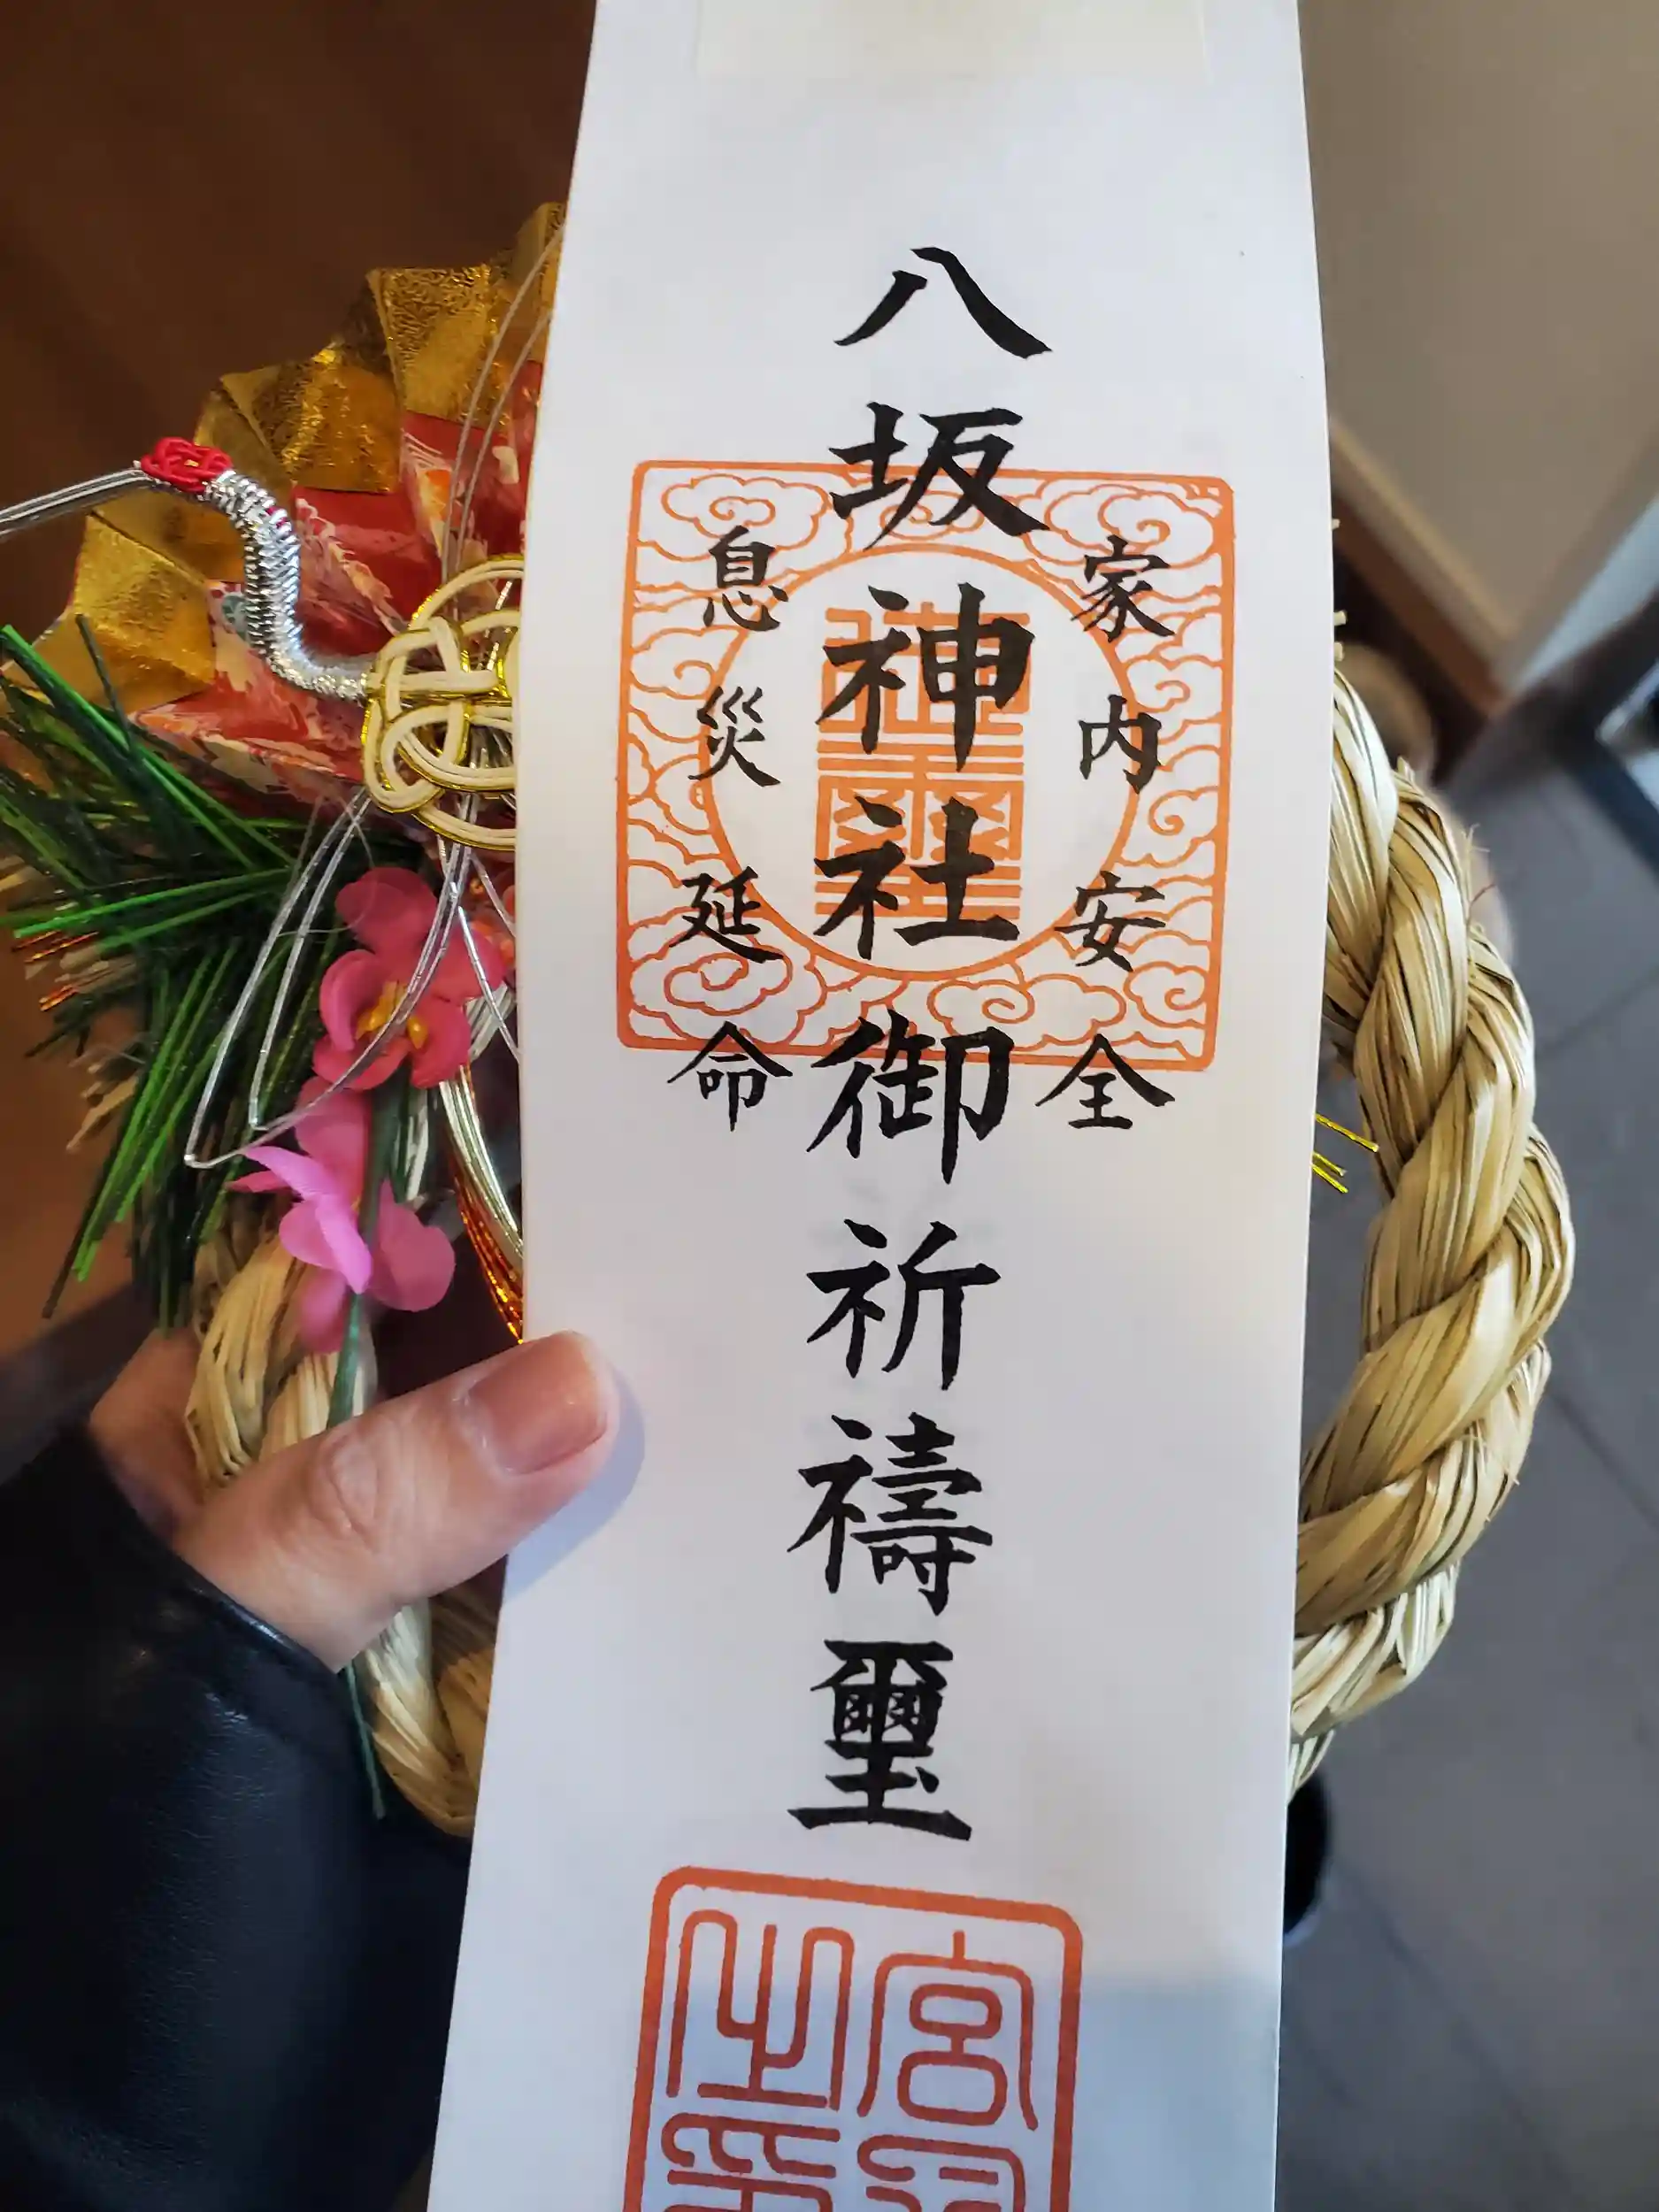 家内安全
八坂神社御祈禱璽
息災延命
御璽
宮司之印